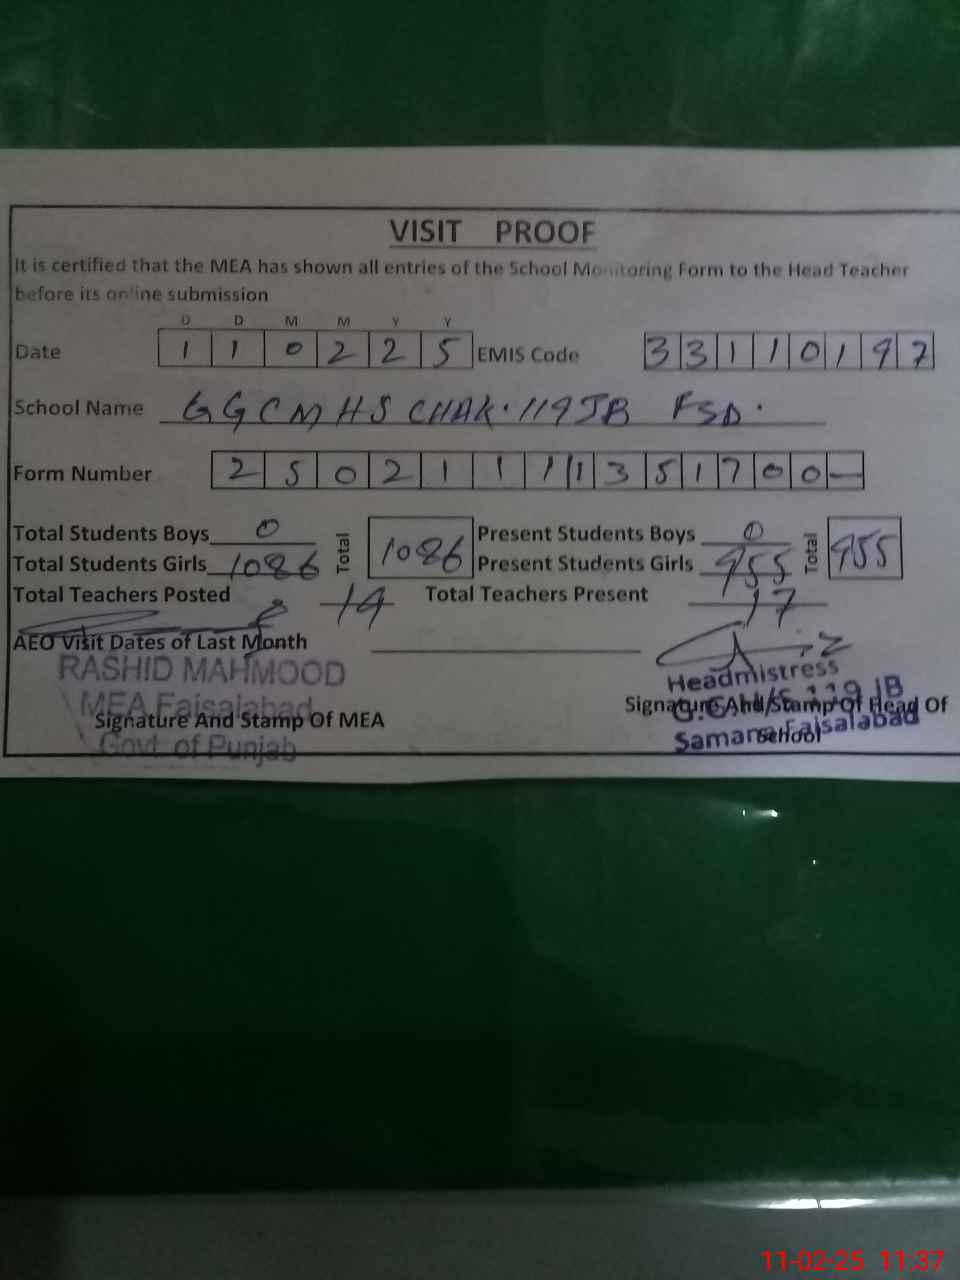 VISIT PROOF
It is certified that the MEA has shown all entries of the School Monitoring Form to the Head Teacher
before its online submission
D D M M Y Y
Date 1 1 0 2 2 5 EMIS Code 3 3 1 1 0 1 9 7
School Name GGCMHS CHAK. 119JB FSD.
Form Number 2 5 0 2 1 1 1 1 3 5 1 7 0 0 —
Total Students Boys 0 Total 1086 Present Students Boys 0 Total 955
Total Students Girls 1086 Present Students Girls 955
Total Teachers Posted 19 Total Teachers Present 17
AEO Visit Dates of Last Month
RASHID MAHMOOD
MEA Faisalabad
Signature And Stamp Of MEA
Govt of Punjab
Headmistress
119 JB
Signature And Stamp Of Head Of
School
Samana Faisalabad
11-02-25 11:37